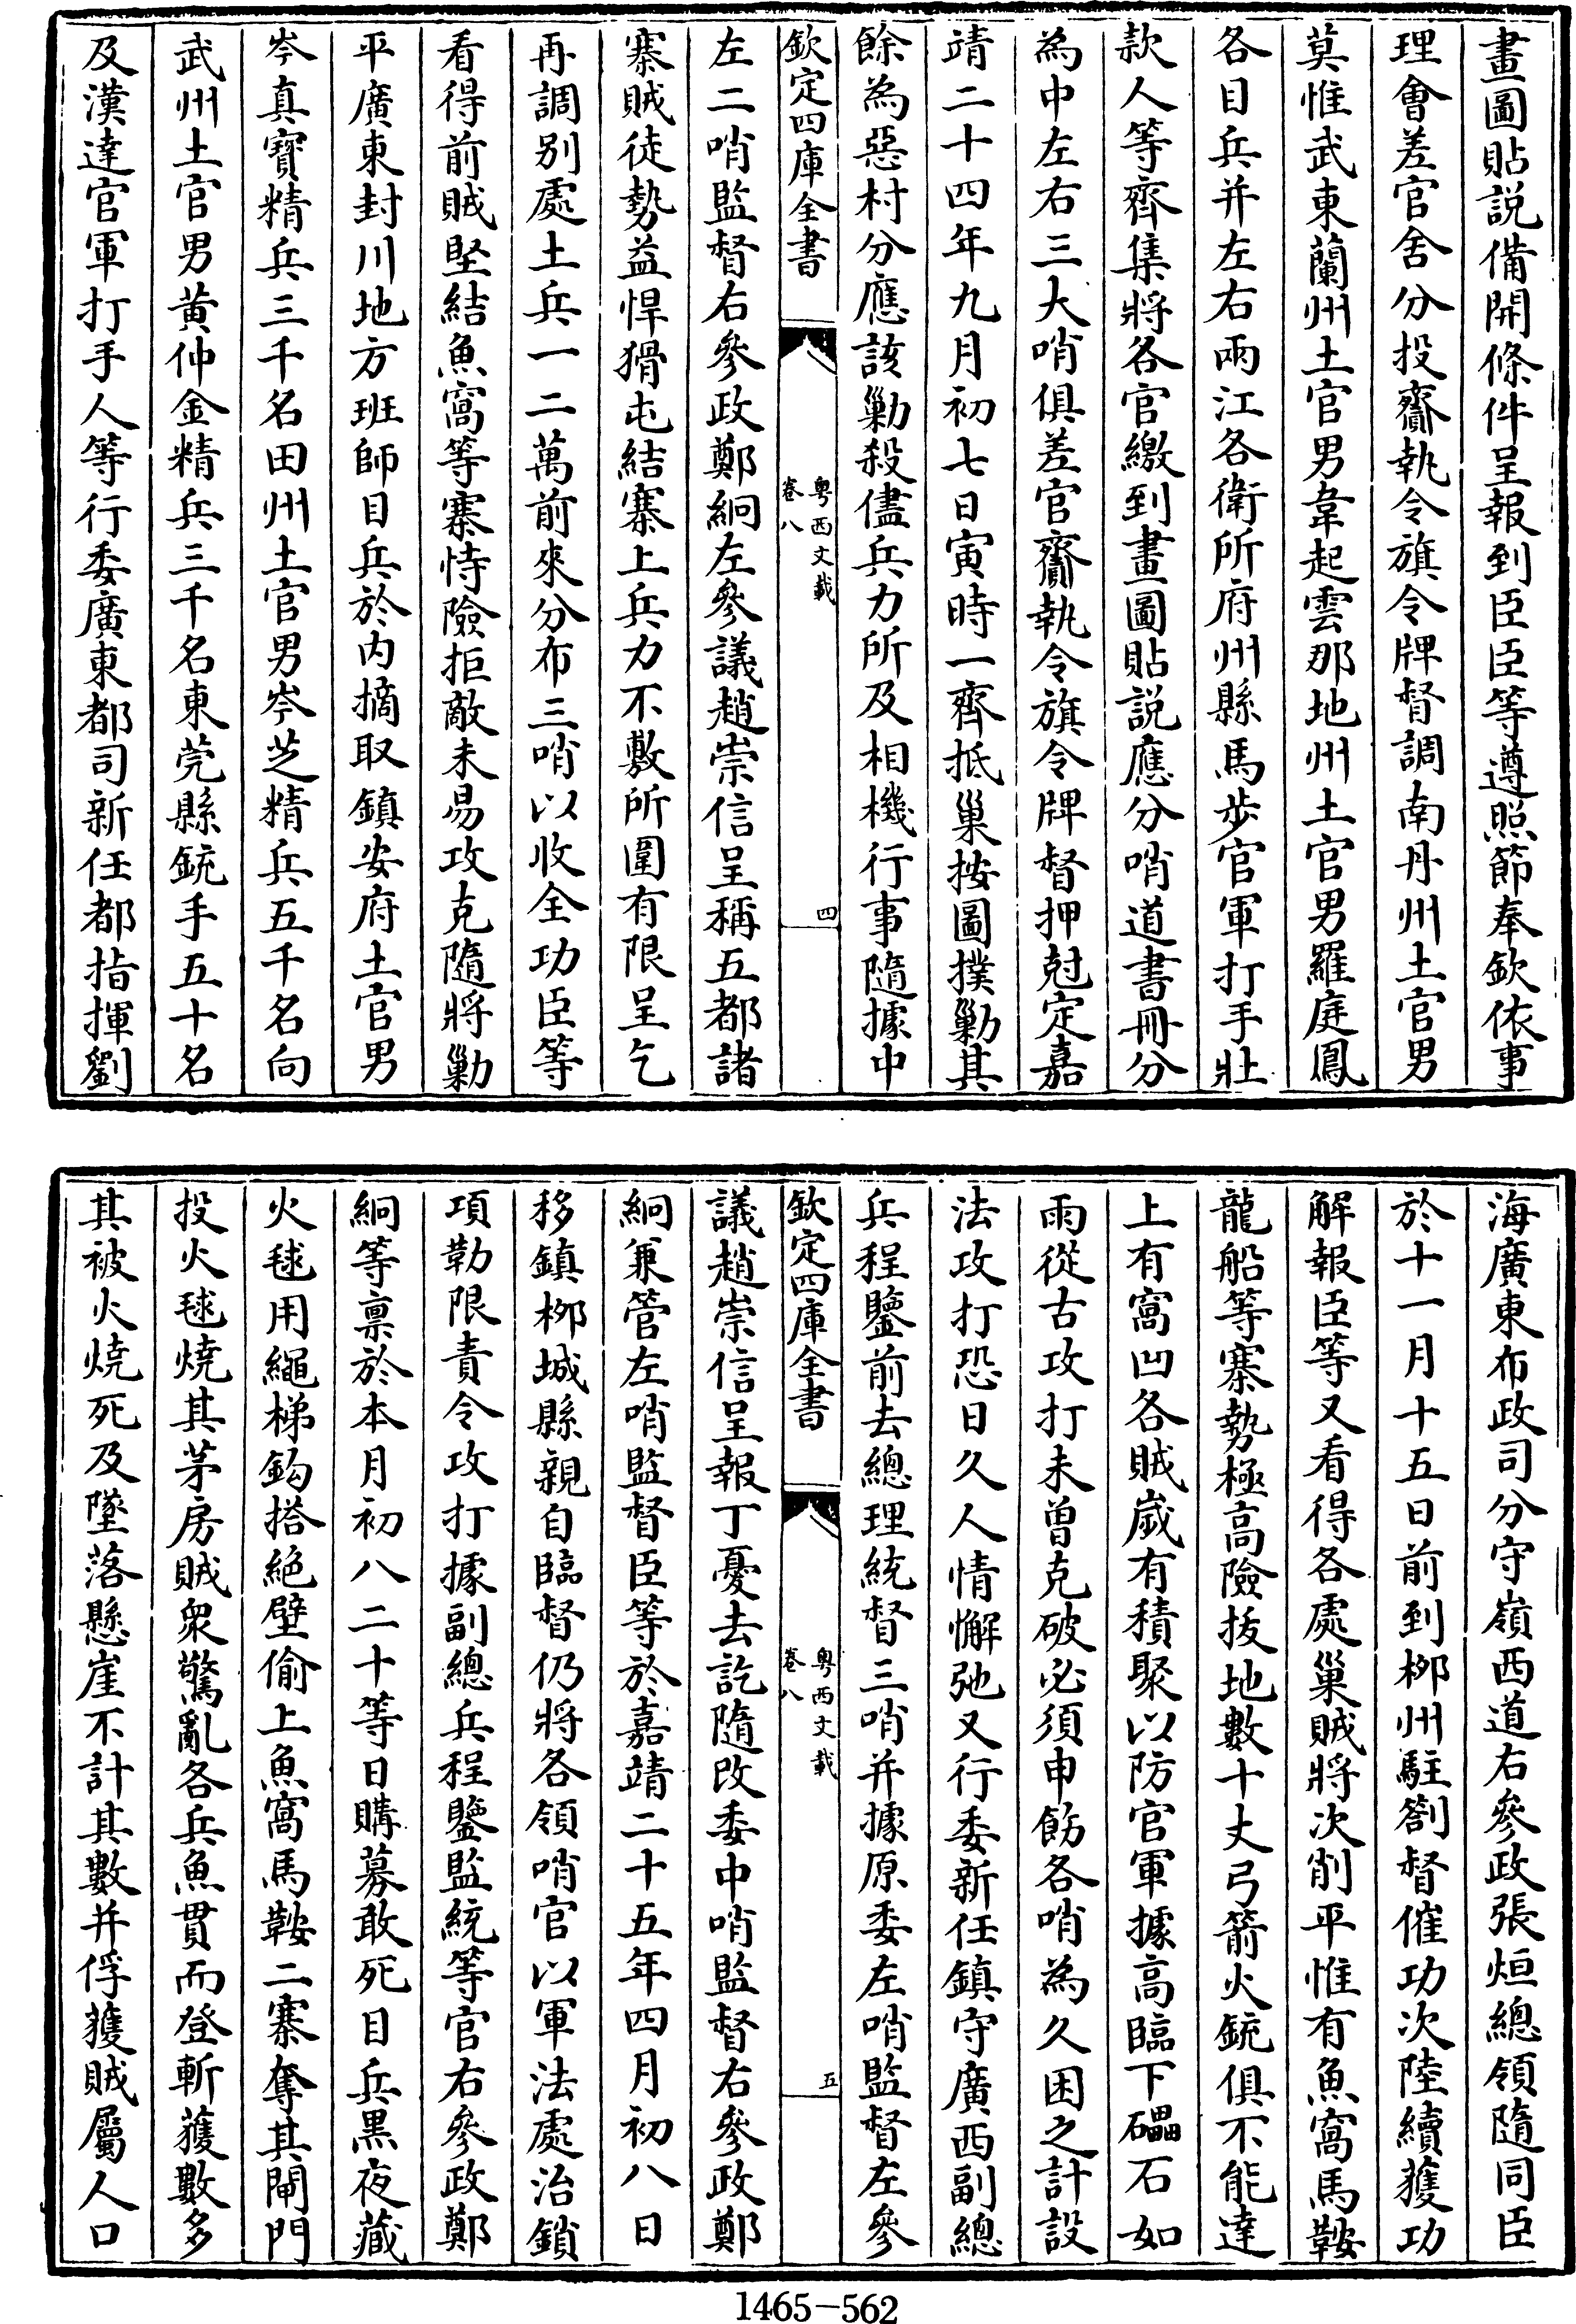 畫圖貼説備開條件呈報到臣臣等遵照節奉欽依事
理會差官舍分投齎執令旗令牌督調南丹州土官男
莫惟武東蘭州土官男韋起雲那地州土官男羅庭鳳
各目兵并左右兩江各衛所府州縣馬步官軍打手壯
款人等齊集將各官繳到畫圖貼説應分哨道書冊分
為中左右三大哨俱差官齎執令旗令牌督押尅定嘉
靖二十四年九月初七日寅時一齊抵巢按圖撲勦其
餘為惡村分應該勦殺儘兵力所及相機行事隨據中
欽定四庫全書
粤西文載
卷八
四
左二哨監督右參政鄭絅左參議趙崇信呈稱五都諸
寨賊徒勢益悍猾屯結寨上兵力不敷所圍有限呈乞
再調别處土兵一二萬前來分布三哨以收全功臣等
看得前賊堅結魚窩等寨恃險拒敵未易攻克隨將勦
平廣東封川地方班師目兵於内摘取鎮安府土官男
岑真寶精兵三千名田州土官男岑芝精兵五千名向
武州土官男黄仲金精兵三千名東莞縣銃手五十名
及漢達官軍打手人等行委廣東都司新任都指揮劉
海廣東布政司分守嶺西道右參政張烜總領隨同臣
於十一月十五日前到栁州駐劄督催功次陸續獲功
解報臣等又看得各處巢賊將次削平惟有魚窩馬鞍
龍船等寨勢極高險拔地數十丈弓箭火銃俱不能達
上有窩凹各賊嵗有積聚以防官軍據高臨下礧石如
雨從古攻打未曾克破必須申飭各哨為久困之計設
法攻打恐日久人情懈弛又行委新任鎮守廣西副總
兵程鑒前去總理統督三哨并據原委左哨監督左參
欽定四庫全書
粤西文載
卷八
五
議趙崇信呈報丁憂去訖隨改委中哨監督右參政鄭
絅兼管左哨監督臣等於嘉靖二十五年四月初八日
移鎮栁城縣親自臨督仍將各領哨官以軍法處治鎖
項勒限責令攻打據副總兵程鑒監統等官右參政鄭
絅等禀於本月初八二十等日購募敢死目兵黑夜藏
火毬用繩梯鈎搭絶壁偷上魚窩馬鞍二寨奪其閘門
投火毬燒其茅房賊衆驚亂各兵魚貫而登斬獲數多
其被火燒死及墜落懸崖不計其數并俘獲賊屬人口
1465-562